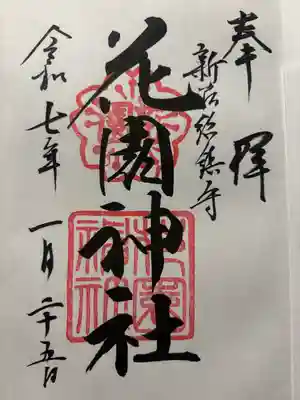 奉拝
新宿総鎮守
花園神社
令和七年一月二十五日